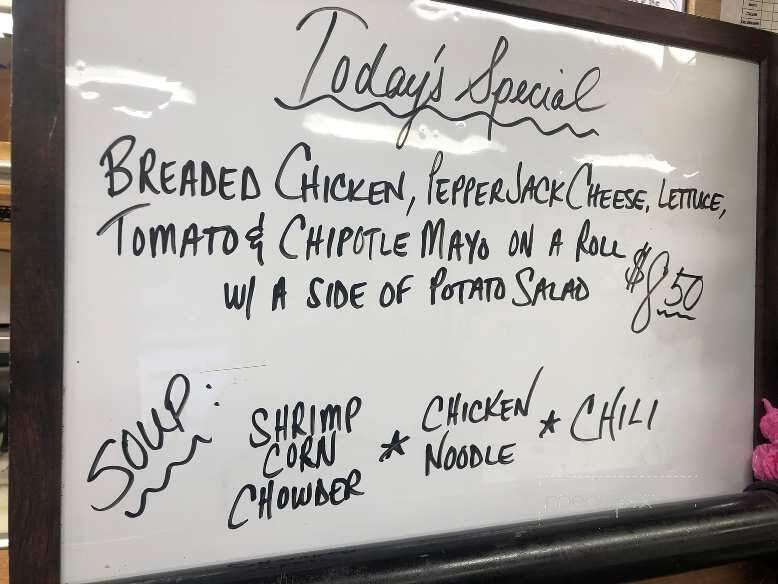 Today's Special
BREADED CHICKEN, PEPPER JACK CHEESE, LETTUCE,
TOMATO & CHIPOTLE MAYO ON A ROLL
W/ A SIDE OF POTATO SALAD $8.50
SOUP:
SHRIMP CORN CHOWDER * CHICKEN NOODLE * CHILI